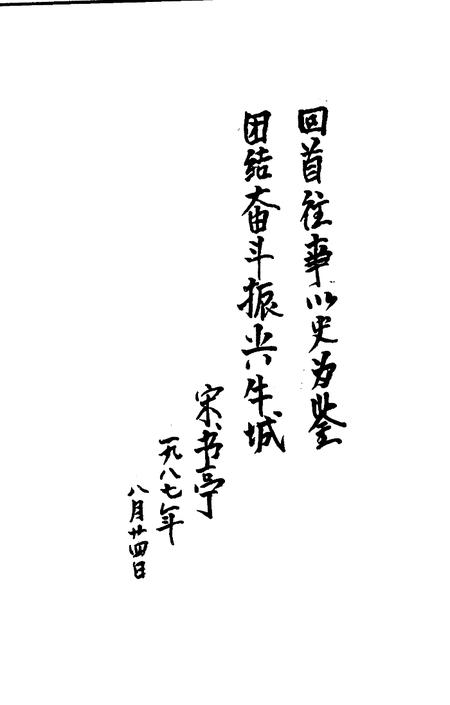 回首往事以史为鉴
团结奋斗振兴牛城
宋书亭
一九八七年
八月廿四日